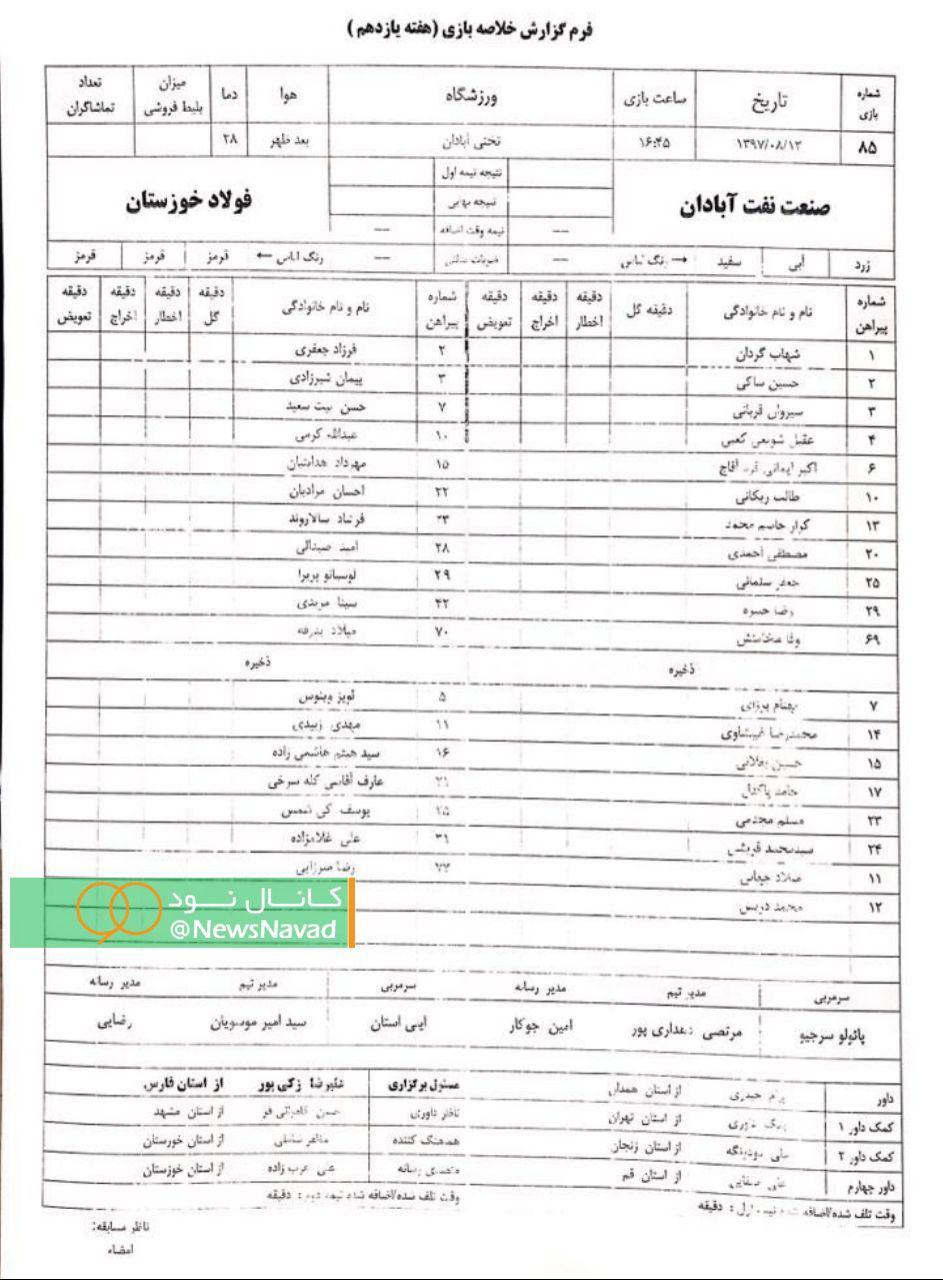 فرم گزارش خلاصه بازی (هفته یازدهم)
شماره بازی تاریخ ساعت بازی ورزشگاه هوا دما میزان بلیط فروشی تعداد تماشاگران
۸۵ ۱۳۹۷/۰۸/۱۳ ۱۶:۴۵ تختی آبادان بعد ظهر ۲۸
صنعت نفت آبادان
نتیجه نیمه اول
نتیجه نهایی
نیمه وقت اضافه
فولاد خوزستان
زرد آبی سفید رنگ لباس -- ضربات پنالتی -- رنگ لباس قرمز قرمز قرمز
شماره پیراهن نام و نام خانوادگی دقیقه گل دقیقه اخطار دقیقه اخراج دقیقه تعویض شماره پیراهن نام و نام خانوادگی دقیقه گل دقیقه اخطار دقیقه اخراج دقیقه تعویض
۱ شهاب گردان ۲ فرزاد جعفری
۲ حسین ساکی ۳ پیمان شیرزادی
۳ سیروان قربانی ۷ حسن بیت سعید
۴ عقیل کعبی ۱۰ عبدالله کرمی
۶ اکبر ایمانی ۱۵ مهرداد
۱۰ طالب ریکانی ۲۲ احسان مرادیان
۱۳ کرار جاسم محمد ۳۳ فرشاد سالاروند
۲۰ مصطفی احمدی ۲۸ امید
۲۵ جعفر سلمانی ۲۹ لوسیانو پریرا
۲۹ رضا ۴۲ سینا مریدی
۶۹ وفا ۷۰ میلاد بدرقه
ذخیره ذخیره
۷ ۵ لوپز وینوس
۱۴ محمدرضا ۱۱ مهدی زبیدی
۱۵ حسین ۱۶ سید هیثم هاشمی زاده
۱۷ حامد پاکدل ۲۱ عارف آقاسی کله سرخی
۲۳ مسلم مجدمی ۲۵ یوسف کی شمس
۲۴ سیدمحمد قریشی ۳۱ علی غلامزاده
۱۱ میلاد ۷۷ رضا میرزایی
۱۲ محمد
کانال نود
@NewsNavad
سرمربی مدیر تیم مدیر رسانه سرمربی مدیر تیم مدیر رسانه
پائولو سرجیو مرتضی امین جوکار ایی استان سید امیر موسویان رضایی
داور حیدری از استان همدان مسئول برگزاری علیرضا زکی پور از استان فارس
کمک داور ۱ از استان تهران ناظر داوری حسن از استان مشهد
کمک داور ۲ از استان زنجان هماهنگ کننده از استان خوزستان
داور چهارم علی از استان قم رسانه علی عرب زاده از استان خوزستان
وقت تلف شده/اضافه شده نیمه اول : دقیقه وقت تلف شده/اضافه شده نیمه دوم : دقیقه
ناظر مسابقه:
امضاء